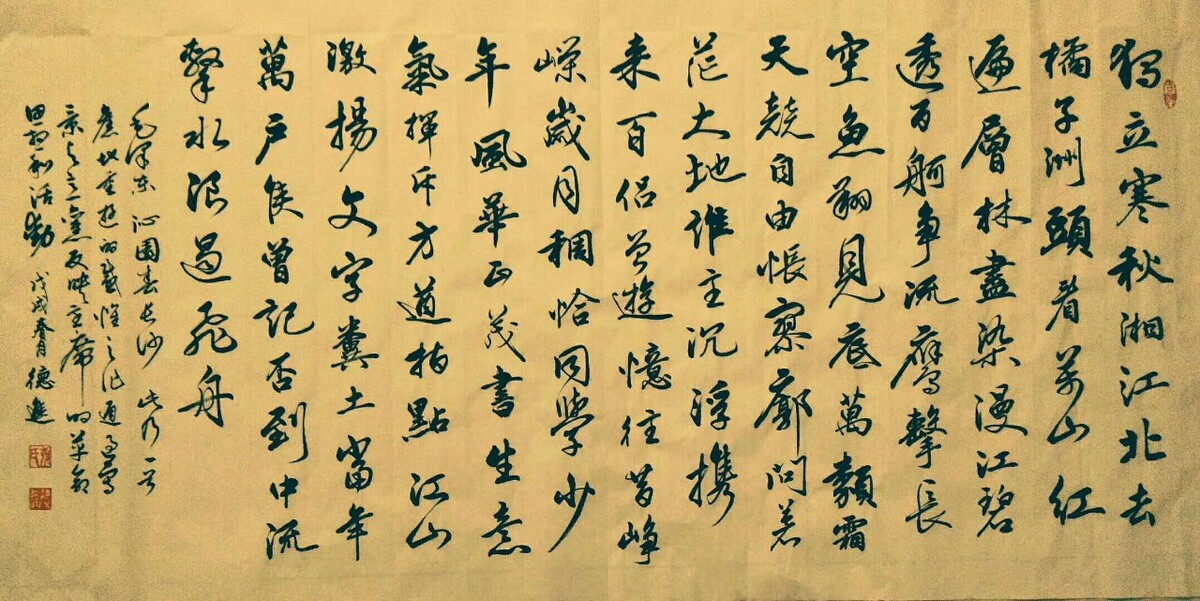 獨立寒秋湘江北去
橘子洲頭看萬山紅
遍層林盡染漫江碧
透百舸爭流鷹擊長
空魚翔見底萬類霜
天競自由悵寥廓問蒼
茫大地誰主沉浮攜
来百侶曾遊憶往昔崢
嶸歲月稠恰同學少
年風華正茂書生意
氣揮斥方遒指點江山
激揚文字糞土當年
萬戶侯曾記否到中流
擊水浪遏飛舟
毛澤東沁園春長沙 此乃一首
舊地重遊的感懷之作通過寫
景反映主席的革命
思想和活動 戊戌春月德進